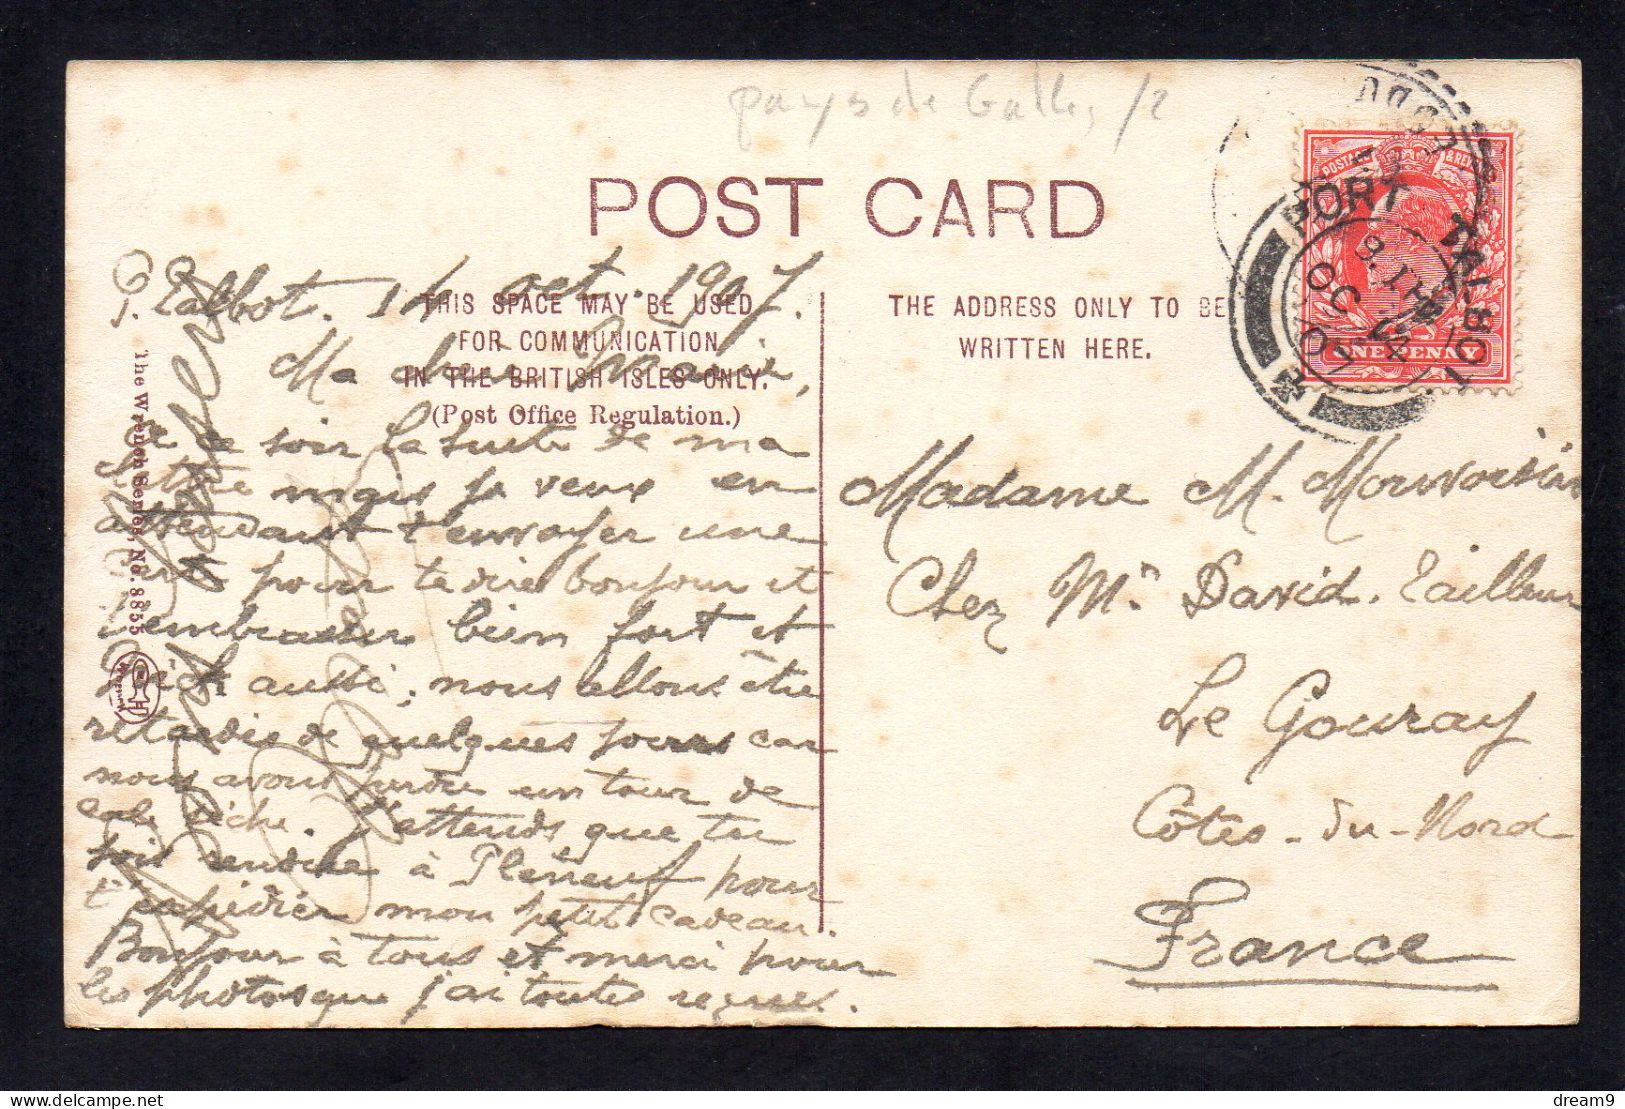 pays de Galles /2
POST CARD
THIS SPACE MAY BE USED
FOR COMMUNICATION
IN THE BRITISH ISLES ONLY.
(Post Office Regulation.)
THE ADDRESS ONLY TO BE
WRITTEN HERE.
The Wrench Series, No. 8855
P. Talbot. 14 oct. 1907.
Ma chère Marie,
ce soir la suite de ma
lettre mais je veux en
attendant t'envoyer une
pour te dire bonjour et
t'embrasser bien fort et
aussi, nous allons être
retardés de quelques jours car
nous avons perdu un tour de
J'attends que tu
sois rendue à Pléneuf pour
t'expédier mon petit cadeau.
Bonjour à tous et merci pour
les photos que j'ai toutes reçues.
POSTAGE & REV
ONE PENNY
PORT
OC 14
07
Madame M. Mouvoisin
Chez Mr. David. Tailleur
Le Gouray
Côtes-du-Nord
France
dream9